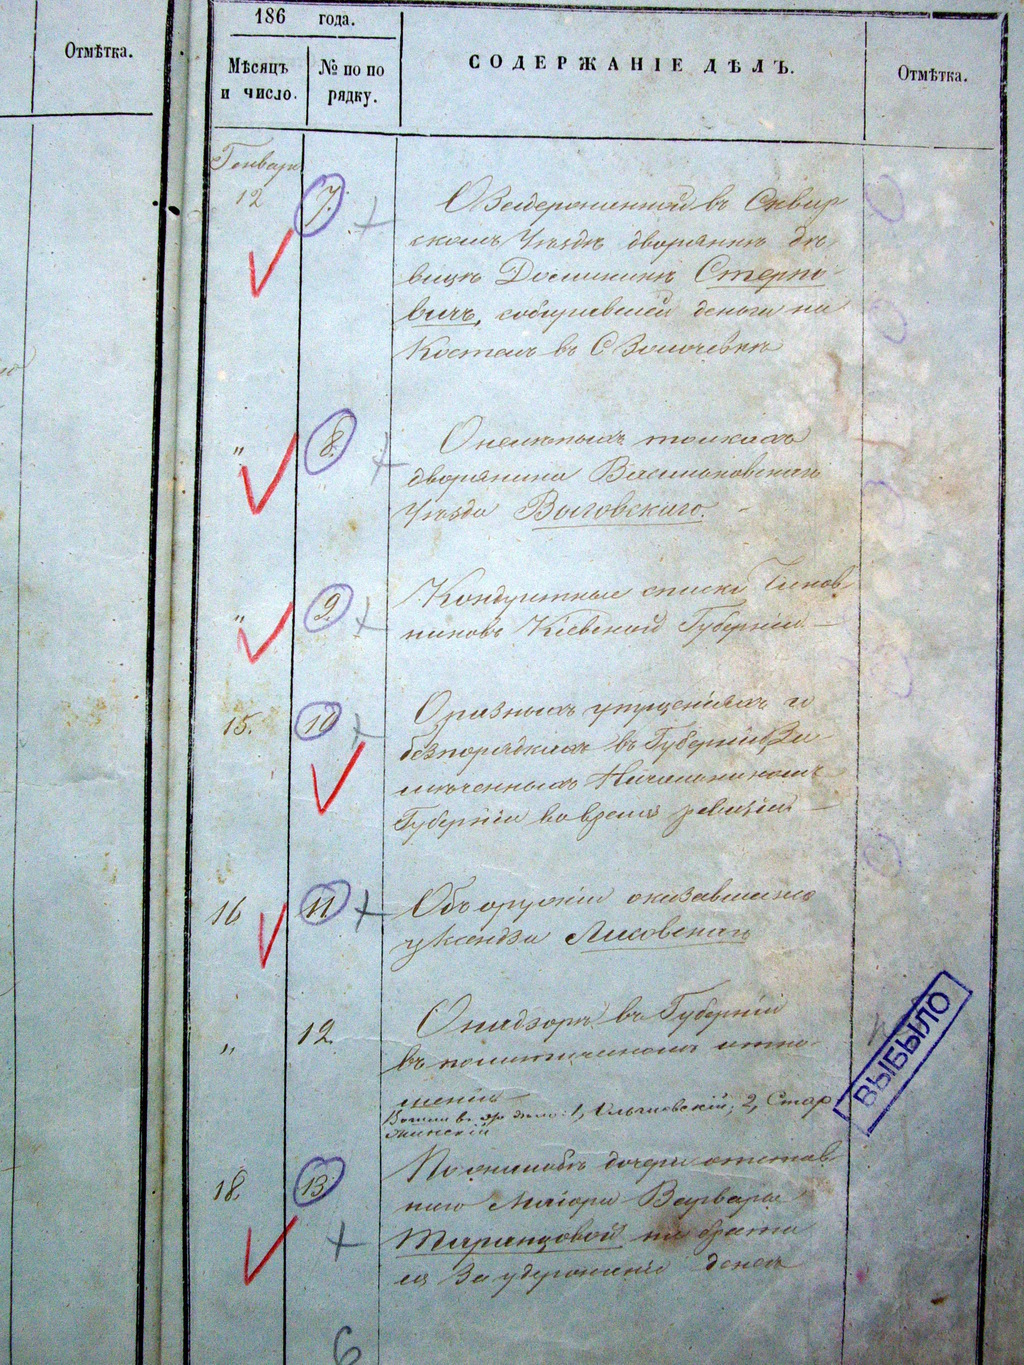 Отмѣтка.
186 года.
Мѣсяцъ и число.
№ по порядку.
СОДЕРЖАНІЕ ДѢЛЪ.
Отмѣтка.
Генваря
12 7. О задержанной въ Сквир
скомъ Уѣздѣ дворянкѣ дѣ
вицѣ Доминикѣ Стерпо
вичъ, собиравшей деньги на
Костелъ въ С
" 8. О нелѣпыхъ толкахъ
дворянина Васильковскаго
Уѣзда Выговскаго.
" 9. Кондуитные списки Чинов
никовъ Кіевской Губерніи
15. 10 О разныхъ упущеніяхъ и
безпорядкахъ въ Губерніи, За
мѣченныхъ Начальникомъ
Губерніи во время ревизіи
16 11 Объ оружіи оказавшемся
у Ксендза Лисовскаго
" 12. О надзорѣ въ Губерніи
въ политическомъ отно
шеніи
1, 2, Стар
жинскій
18. 13. По жалобѣ дочери отстав
наго Маіора Варвары
Таранцовой на брата
ея За удержаніе денегъ
ВЫБЫЛО
6